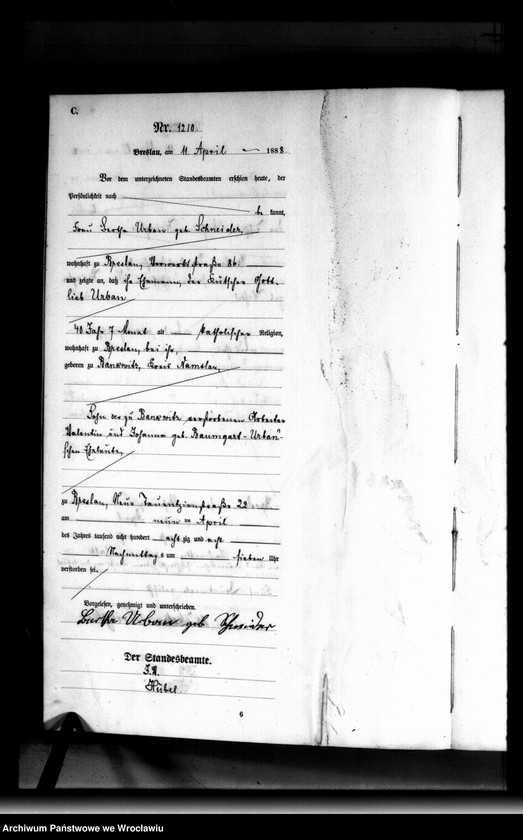 C.
Nr. 1210.
Breslau, am 11 April 1888
Vor dem unterzeichneten Standesbeamten erschien heute, der
Persönlichkeit nach
be kannt,
Frau Bertha Urban geb. Schneider,
wohnhaft zu Breslau, Vorwerkstraße 86
und zeigte an, daß ihr Ehemann, der Kutscher Gott-
lieb Urban
40 Jahr 7 Monat alt katholischer Religion,
wohnhaft zu Breslau, bei ihr,
geboren zu Bankwitz, Kreis Namslau,
Sohn der zu Bankwitz verstorbenen Arbeiter
Valentin und Johanna geb. Baumgart-Urban'
schen Eheleute,
zu Breslau, Neue Tauentzienstraße 22
am neun ten April
des Jahres tausend acht hundert acht zig und acht
Nachmittags um sieben Uhr
verstorben sei.
Vorgelesen, genehmigt und unterschrieben.
Bertha Urban geb Schneider
Der Standesbeamte.
J.V.
6
Archiwum Państwowe we Wrocławiu